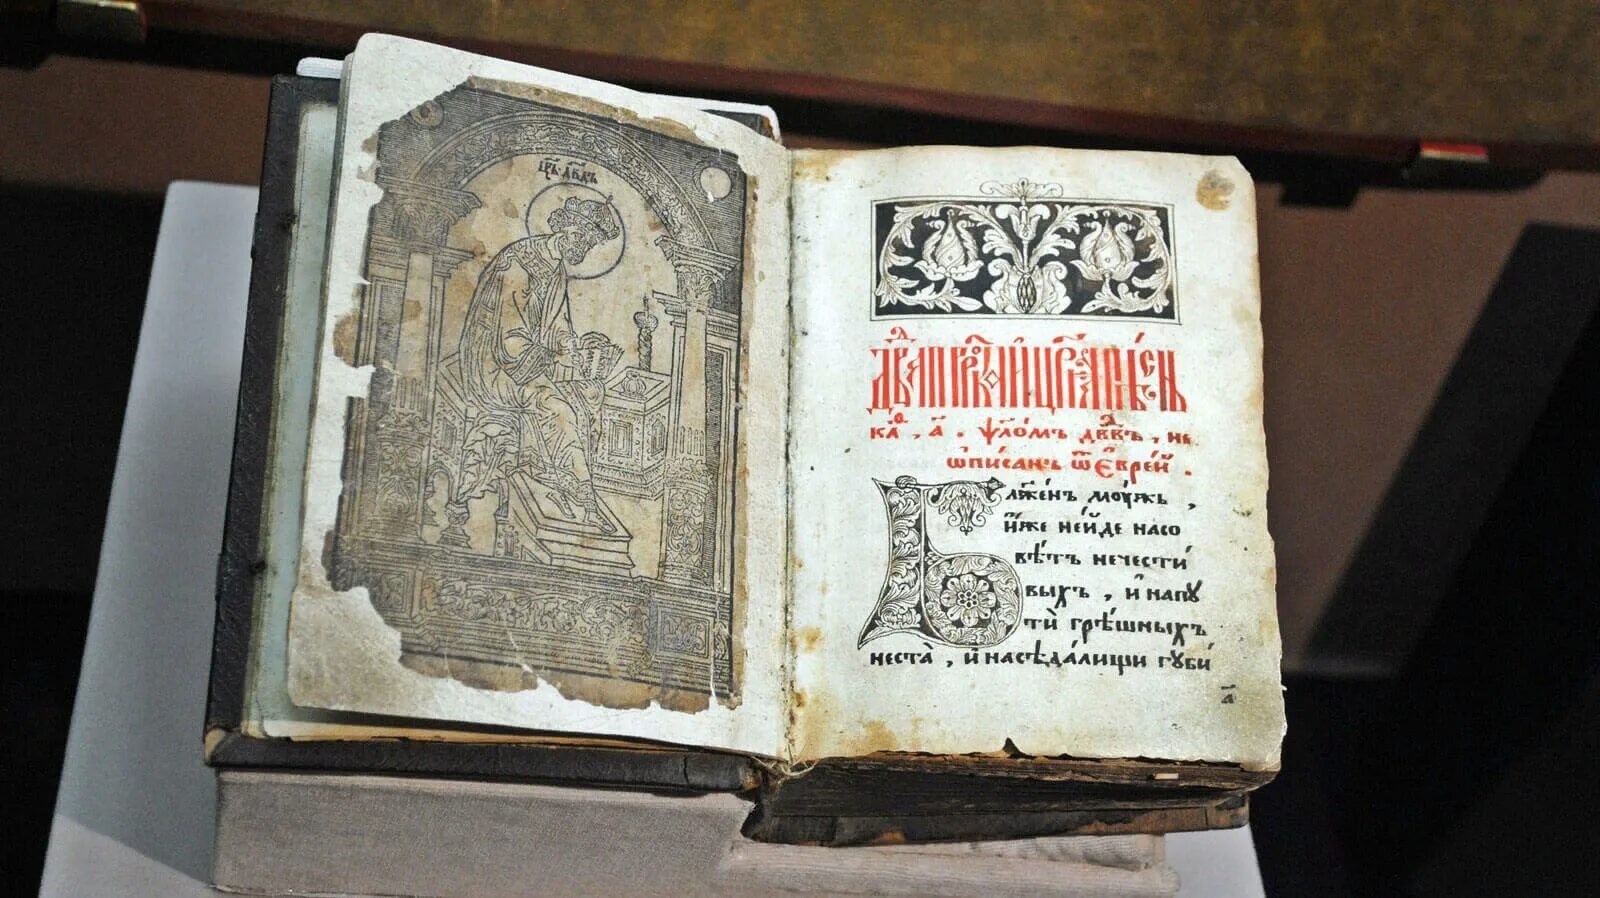 цр҃ь дв҃дъ
Дв҃да прⷪ҇рка и цр҃ѧ пѣсн
ка҃ , а҃ . ѱало́мъ дв҃дъ , не
ѡ҆пи́санъ ѿ є҆вре́й .
Бл҃же́нъ мꙋ́жъ ,
и҆́же не и҆́де на со
вѣ́тъ нечести́
выхъ , и҆ на пꙋ
тѝ грѣ́шныхъ
не ста̀ , и҆ на сѣда́лищи гꙋби́
а҃